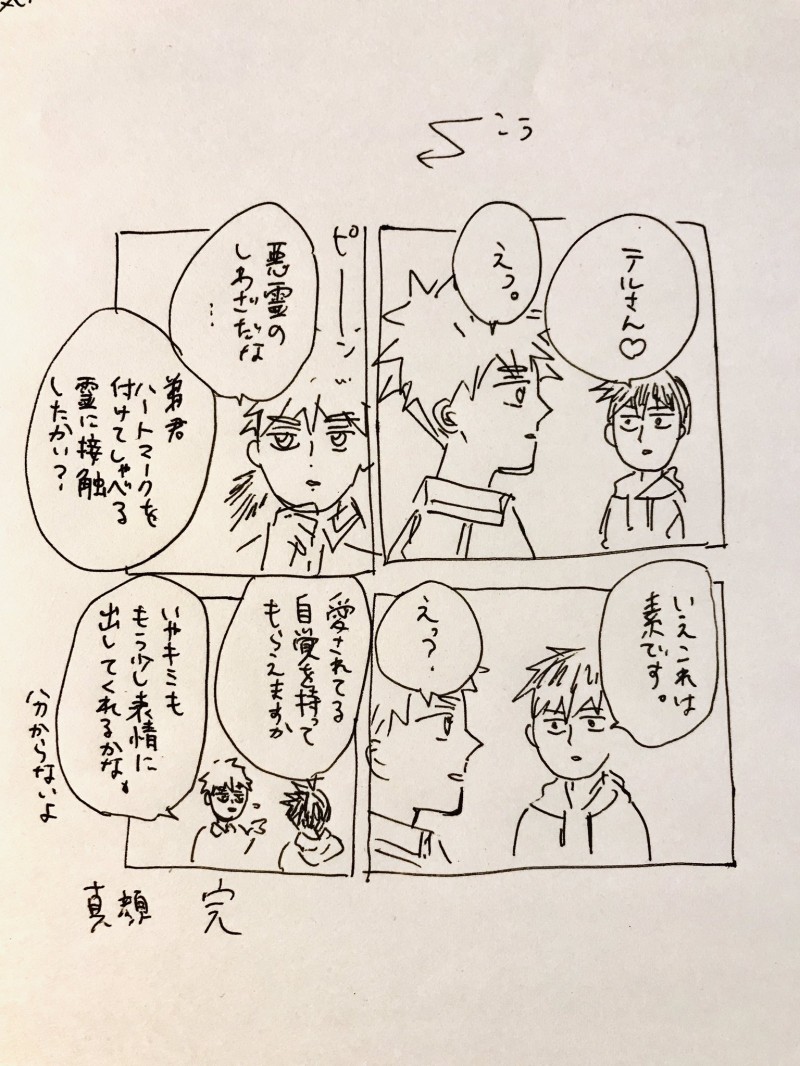 こう
テルさん♡
えっ。
ピーン
悪霊の
しわざだな
…
弟君
ハートマークを
付けてしゃべる
霊に接触
したかい?
いえこれは
素です。
えっ?
愛されてる
自覚を持って
もらえますか
いやキミも
もう少し表情に
出してくれるかな
分からないよ
真顔
完